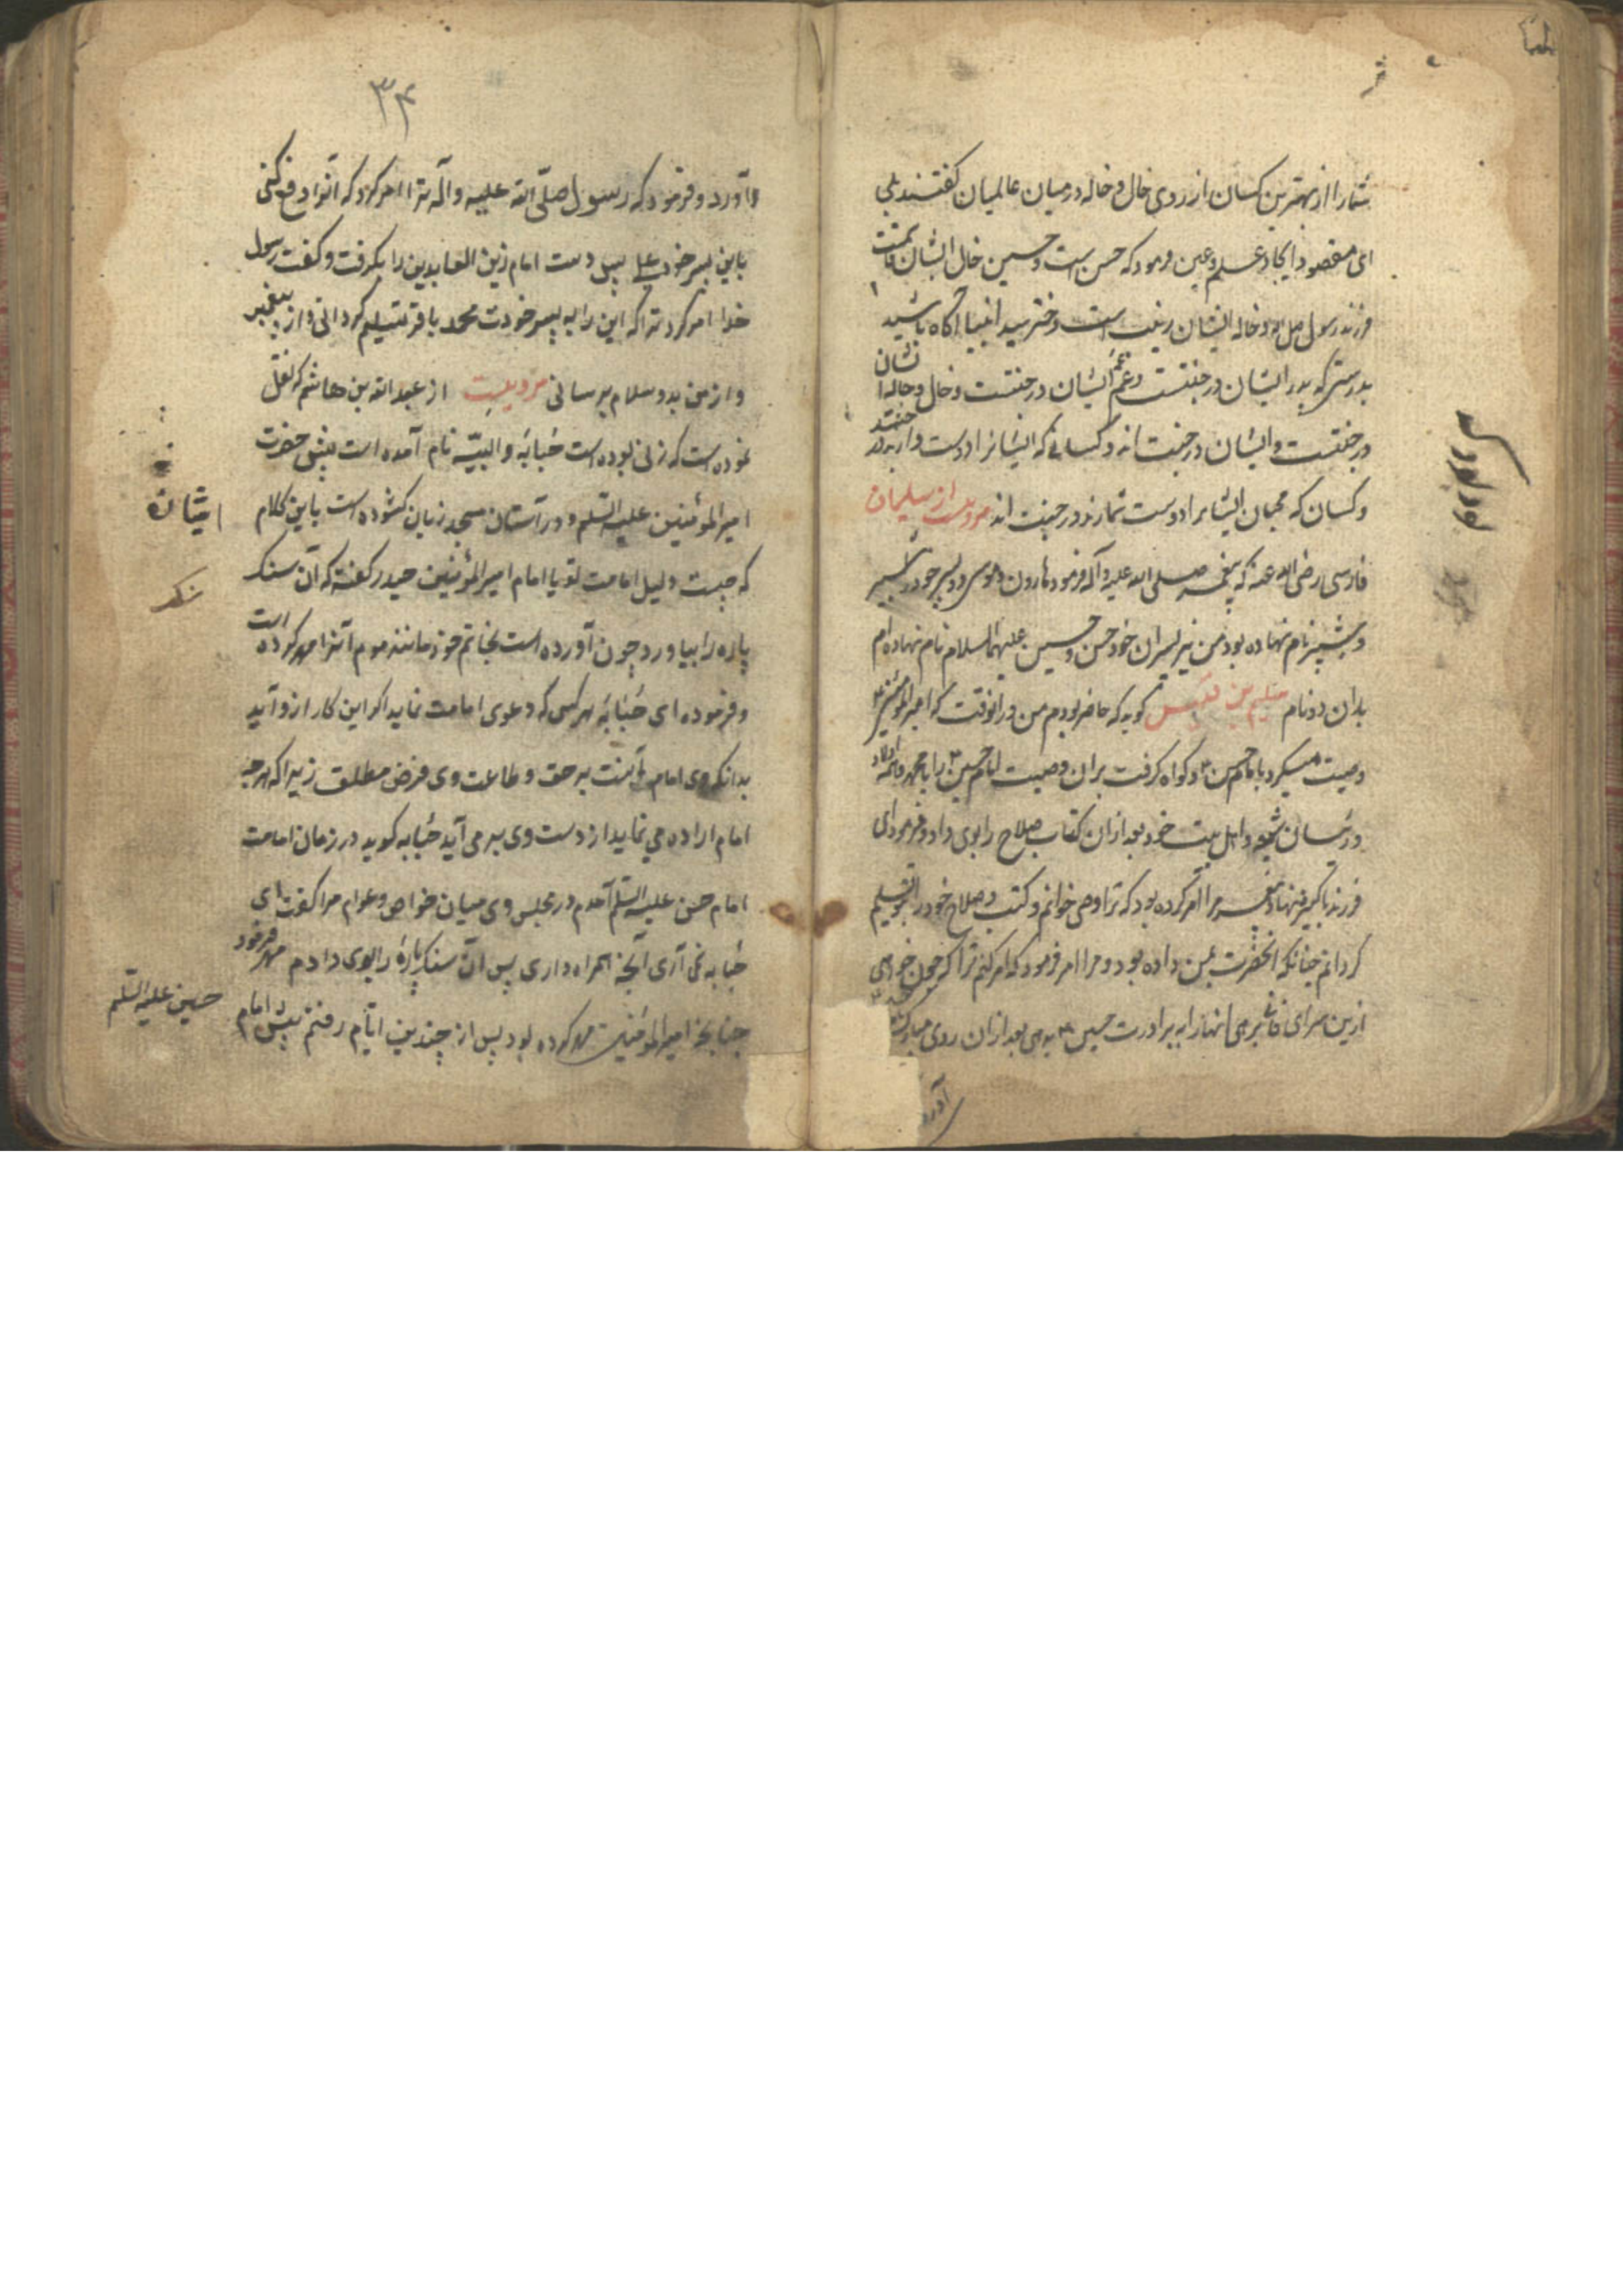 شما را از بهترین کسان از روی خال و خاله در میان عالمیان کفتند بلی
ای مقصود ایجاد فرمود که حسن است و حسین خال ایشان
فرزند رسول و خاله ایشان زینب است دختر سید انبیا آکاه باشید
بدرستی که پدر ایشان در جنتست و عم ایشان در جنتست و خال و خاله ایشان
در جنتست و ایشان در جنت اند و کسانی که ایشانرا دوست دارند در جنتند
و کسان که محبان ایشانرا دوست شمارند در جنت اند مرویست از سلیمان
فارسی رضی الله عنه که پیغمبر صلی الله علیه و آله فرمود هارون دو پسر خود را شبر
و شبیر نام نهاده بود من نیز پسران خود حسن و حسین علیهما السلام نام نهاده ام
بدان دو نام سلیم بن قیس کوید که حاضر بودم من در انوقت که امیر المؤمنین
وصیت میکرد با امام حسن ع و کواه کرفت بران وصیت امام حسین ع را با محمد و اولاد
شیعه و اهل بیت خود بعد ازان کتاب و سلاح را بوی داد و فرمود ای
فرزند پیغمبر مرا امر کرده بود که ترا وصی خوانم و کتب و سلاح خود را بتو تسلیم
کردانم چنانکه انحضرت بمن داده بود و مرا امر فرمود که امر کنم ترا که چون خواهی
ازین سرای فانی انها را به برادرت حسین ع بدهی بعد ازان روی مبارک
آورد
۳۴
آورد و فرمود که رسول صلّی الله علیه و آله ترا امر کرد که انرا دفع کنی
باین پسر خود علی پس دست امام زین العابدین را بکرفت و کفت رسول
خدا امر کرد ترا که این را به پسر خودت محمد باقر تسلیم کردانی و از پیغمبر
و از من بدو سلام برسانی مرویست از عبد الله بن هاشم که نقل
نموده است که زنی بوده است حبابه والبیّه نام آمده است پیش حضرت
امیر المؤمنین علیه السّلم و در آستان مسجد زبان کشوده است باین کلام
که چیست دلیل امامت تو یا امام امیر المؤمنین حیدر کفته که آن سنک
پاره را بیاور و چون آورده است بخاتم خود مانند موم آنرا مهر کرده است
و فرموده ای حبابه هر کس که دعوی امامت نماید اکر این کار ازو آید
بدانکه وی امام است بر حق و طاعت وی فرض مطلق زیرا که هر چه
امام اراده می نماید از دست وی بر می آید حبابه کوید در زمان امامت
امام حسن علیه السّلم آمدم در مجلس وی میان خواص و عوام مرا کفت ای
حبابه نمی آری آنچه همراه داری پس آن سنک پاره را بوی دادم مهر فرمود
چنانچه امیر المؤمنین مهر کرده بود پس از چندین ایّام رفتم پیش امام
حسین علیه السّلم